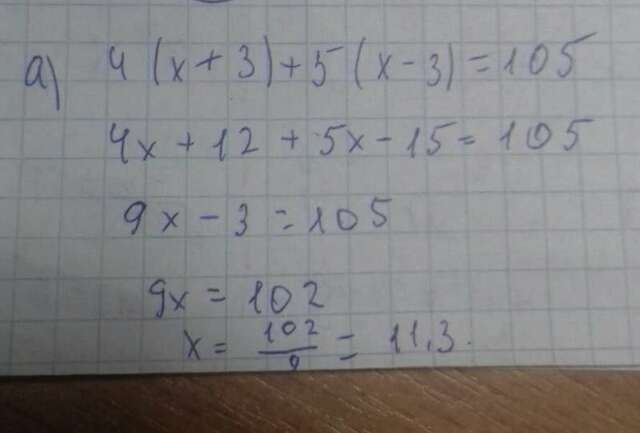 a) 4(x+3)+5(x-3)=105
4x+12+5x-15=105
9x-3=105
9x=102
x=102/9=11,3.